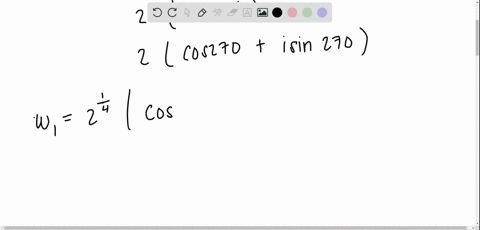 2 (
2 ( cos270 + isin 270 )
w₁ = 2^{1/4} ( cos